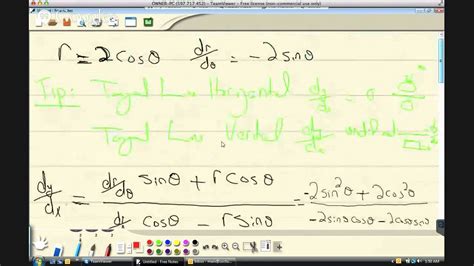 OWNER-PC (597 717 452) - TeamViewer - Free license (non-commercial use only)
r = 2cosθ dr/dθ = -2sinθ
Tip: Tangent Line Horizontal dy/dx = 0
Tangent Line Vertical dy/dx undefined
dy/dx = (dr/dθ sinθ + r cosθ)/(dr/dθ cosθ - r sinθ) = (-2sin²θ + 2cos²θ)/(-2sinθcosθ - 2cosθsinθ)
TeamViewer
Untitled - Free Notes